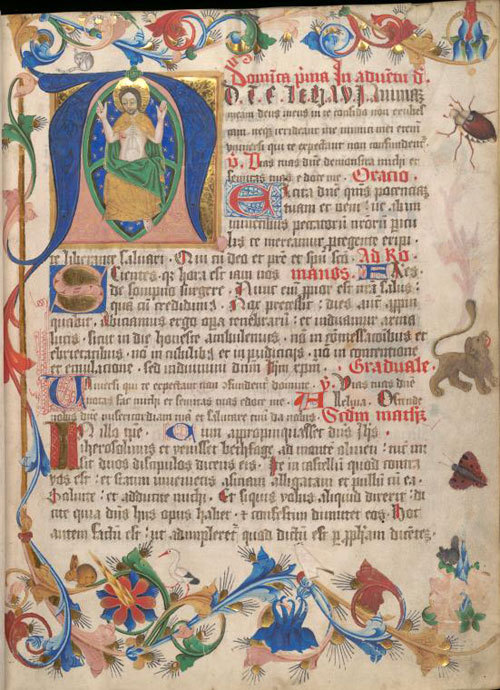 Dominica prima In adventu d.
Animaz
meam deus meus in te confido non erubes
cam. neqz irrideant me inimici mei etenim
universi qui te expectant non confundent
V. Vias tuas dne demonstra michi et
semitas tuas edoce me. Oratio.
Excita dne qs potenciaz
tuam et veni : ut ab im
minentibus peccatorum nrorum pericu
lis te mereamur protegente eripi .
te liberante salvari . Qui cu deo et pre et spu sco . Ad Ro
Scientes qz hora est iam nos manos.
de sompno surgere . Nunc eni propior est nra salus :
qua cu credidimus . Nox precessit : dies aut appin
quavit . Abiciamus ergo opa tenebraru : et induamur arma
lucis . sicut in die honeste ambulemus . no in comessacibus et
ebrietatibus . no in cubilibz et in pudicitiis . no in contentione
et emulatione . sed induimini dnm ihm xpm . Graduale
Universi qui te expectant non confundent domine . V. Vias tuas dne
notas fac michi et semitas tuas edoce me . Alleluia . Ostende
nobis dne misericordiam tuam et salutare tuu da nobis . Scdm mathez
In illo tpe . Cum appropinquasset dns ihs
iherosolimis et venisset bethfage ad monte oliveti : tuc mi
sit duos discipulos dicens eis . Ite in castellu quod contra
vos est : et statim invenietis asinam alligatam et pullu cu ea .
solvite : et adducite michi . Et siquis vobis aliquid dixerit : di
cite quia dns hijs opus habet . et confestim dimittet eos . Hoc
autem factu est : ut adimpleret quod dictu est per ppham dicetez